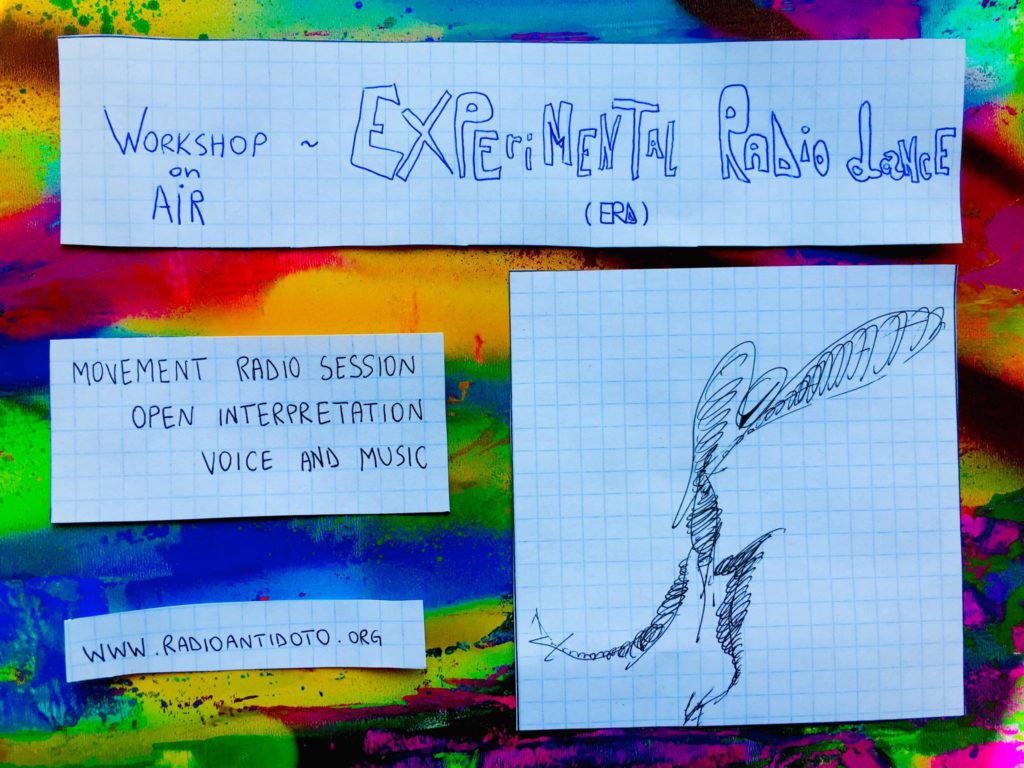 WORKSHOP ~ EXPERiMENTAL RADiO daNCE
on
AiR
(ERD)
MOVEMENT RADIO SESSION
OPEN INTERPRETATION
VOICE AND MUSIC
WWW.RADIOANTIDOTO.ORG